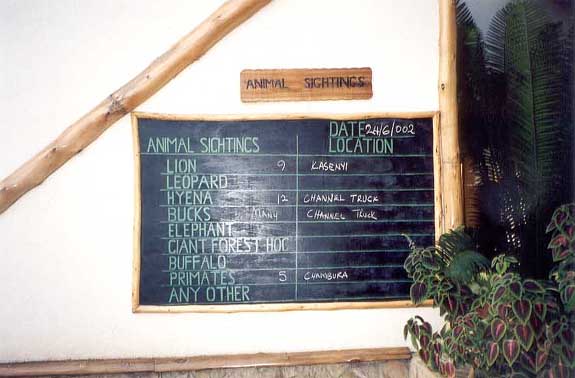 ANIMAL SIGHTINGS
DATE 24/6/002
ANIMAL SIGHTINGS LOCATION
LION 9 KASENYI
LEOPARD
HYENA 12 CHANNEL TRUCK
BUCKS MANY CHANNEL TRUCK
ELEPHANT
GIANT FOREST HOG
BUFFALO
PRIMATES 5 CHAMBURA
ANY OTHER